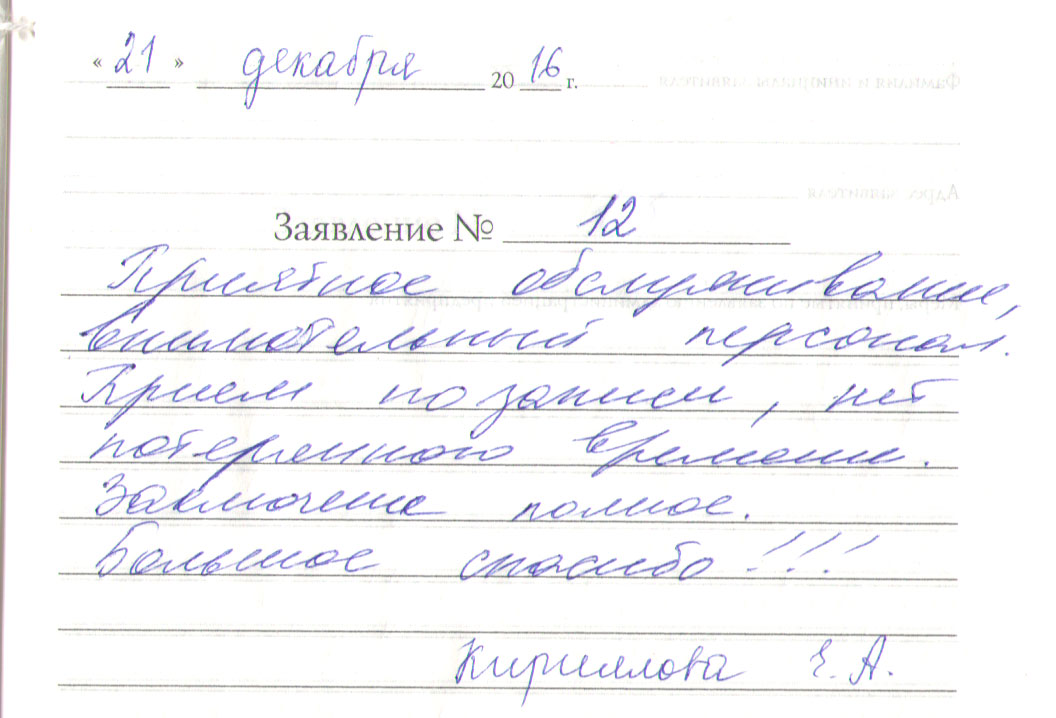 « 21 » декабря 2016 г.
Заявление № 12
Приятное обслуживание,
внимательный персонал.
Прием по записи, нет
потерянного времени.
Заключение полное.
Большое спасибо!!!
Кириллова Е. А.